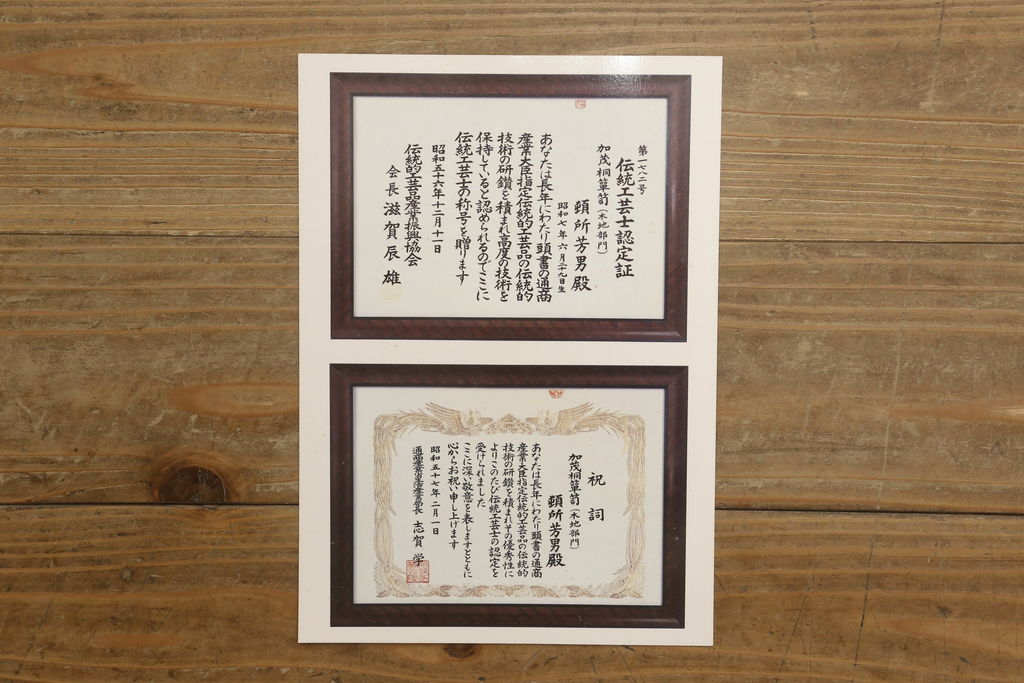 第一七八二号
伝統工芸士認定証
加茂桐簞笥(木地部門)
顕所芳男殿
昭和七年六月二十九日生
あなたは長年にわたり頭書の通商
産業大臣指定伝統的工芸品の伝統的
技術の研鑽を積まれ高度の技術を
保持していると認められるのでここに
伝統工芸士の称号を贈ります
昭和五十六年十二月十一日
伝統的工芸品産業振興協会
会長 滋賀辰雄
祝詞
加茂桐簞笥(木地部門)
顕所芳男殿
あなたは長年にわたり頭書の通商
産業大臣指定伝統的工芸品の伝統的
技術の研鑽を積まれその優秀性に
よりこのたび伝統工芸士の認定を
受けられました
ここに深い敬意を表しますとともに
心からお祝い申し上げます
昭和五十七年二月一日
通商産業省生活産業局長 志賀学